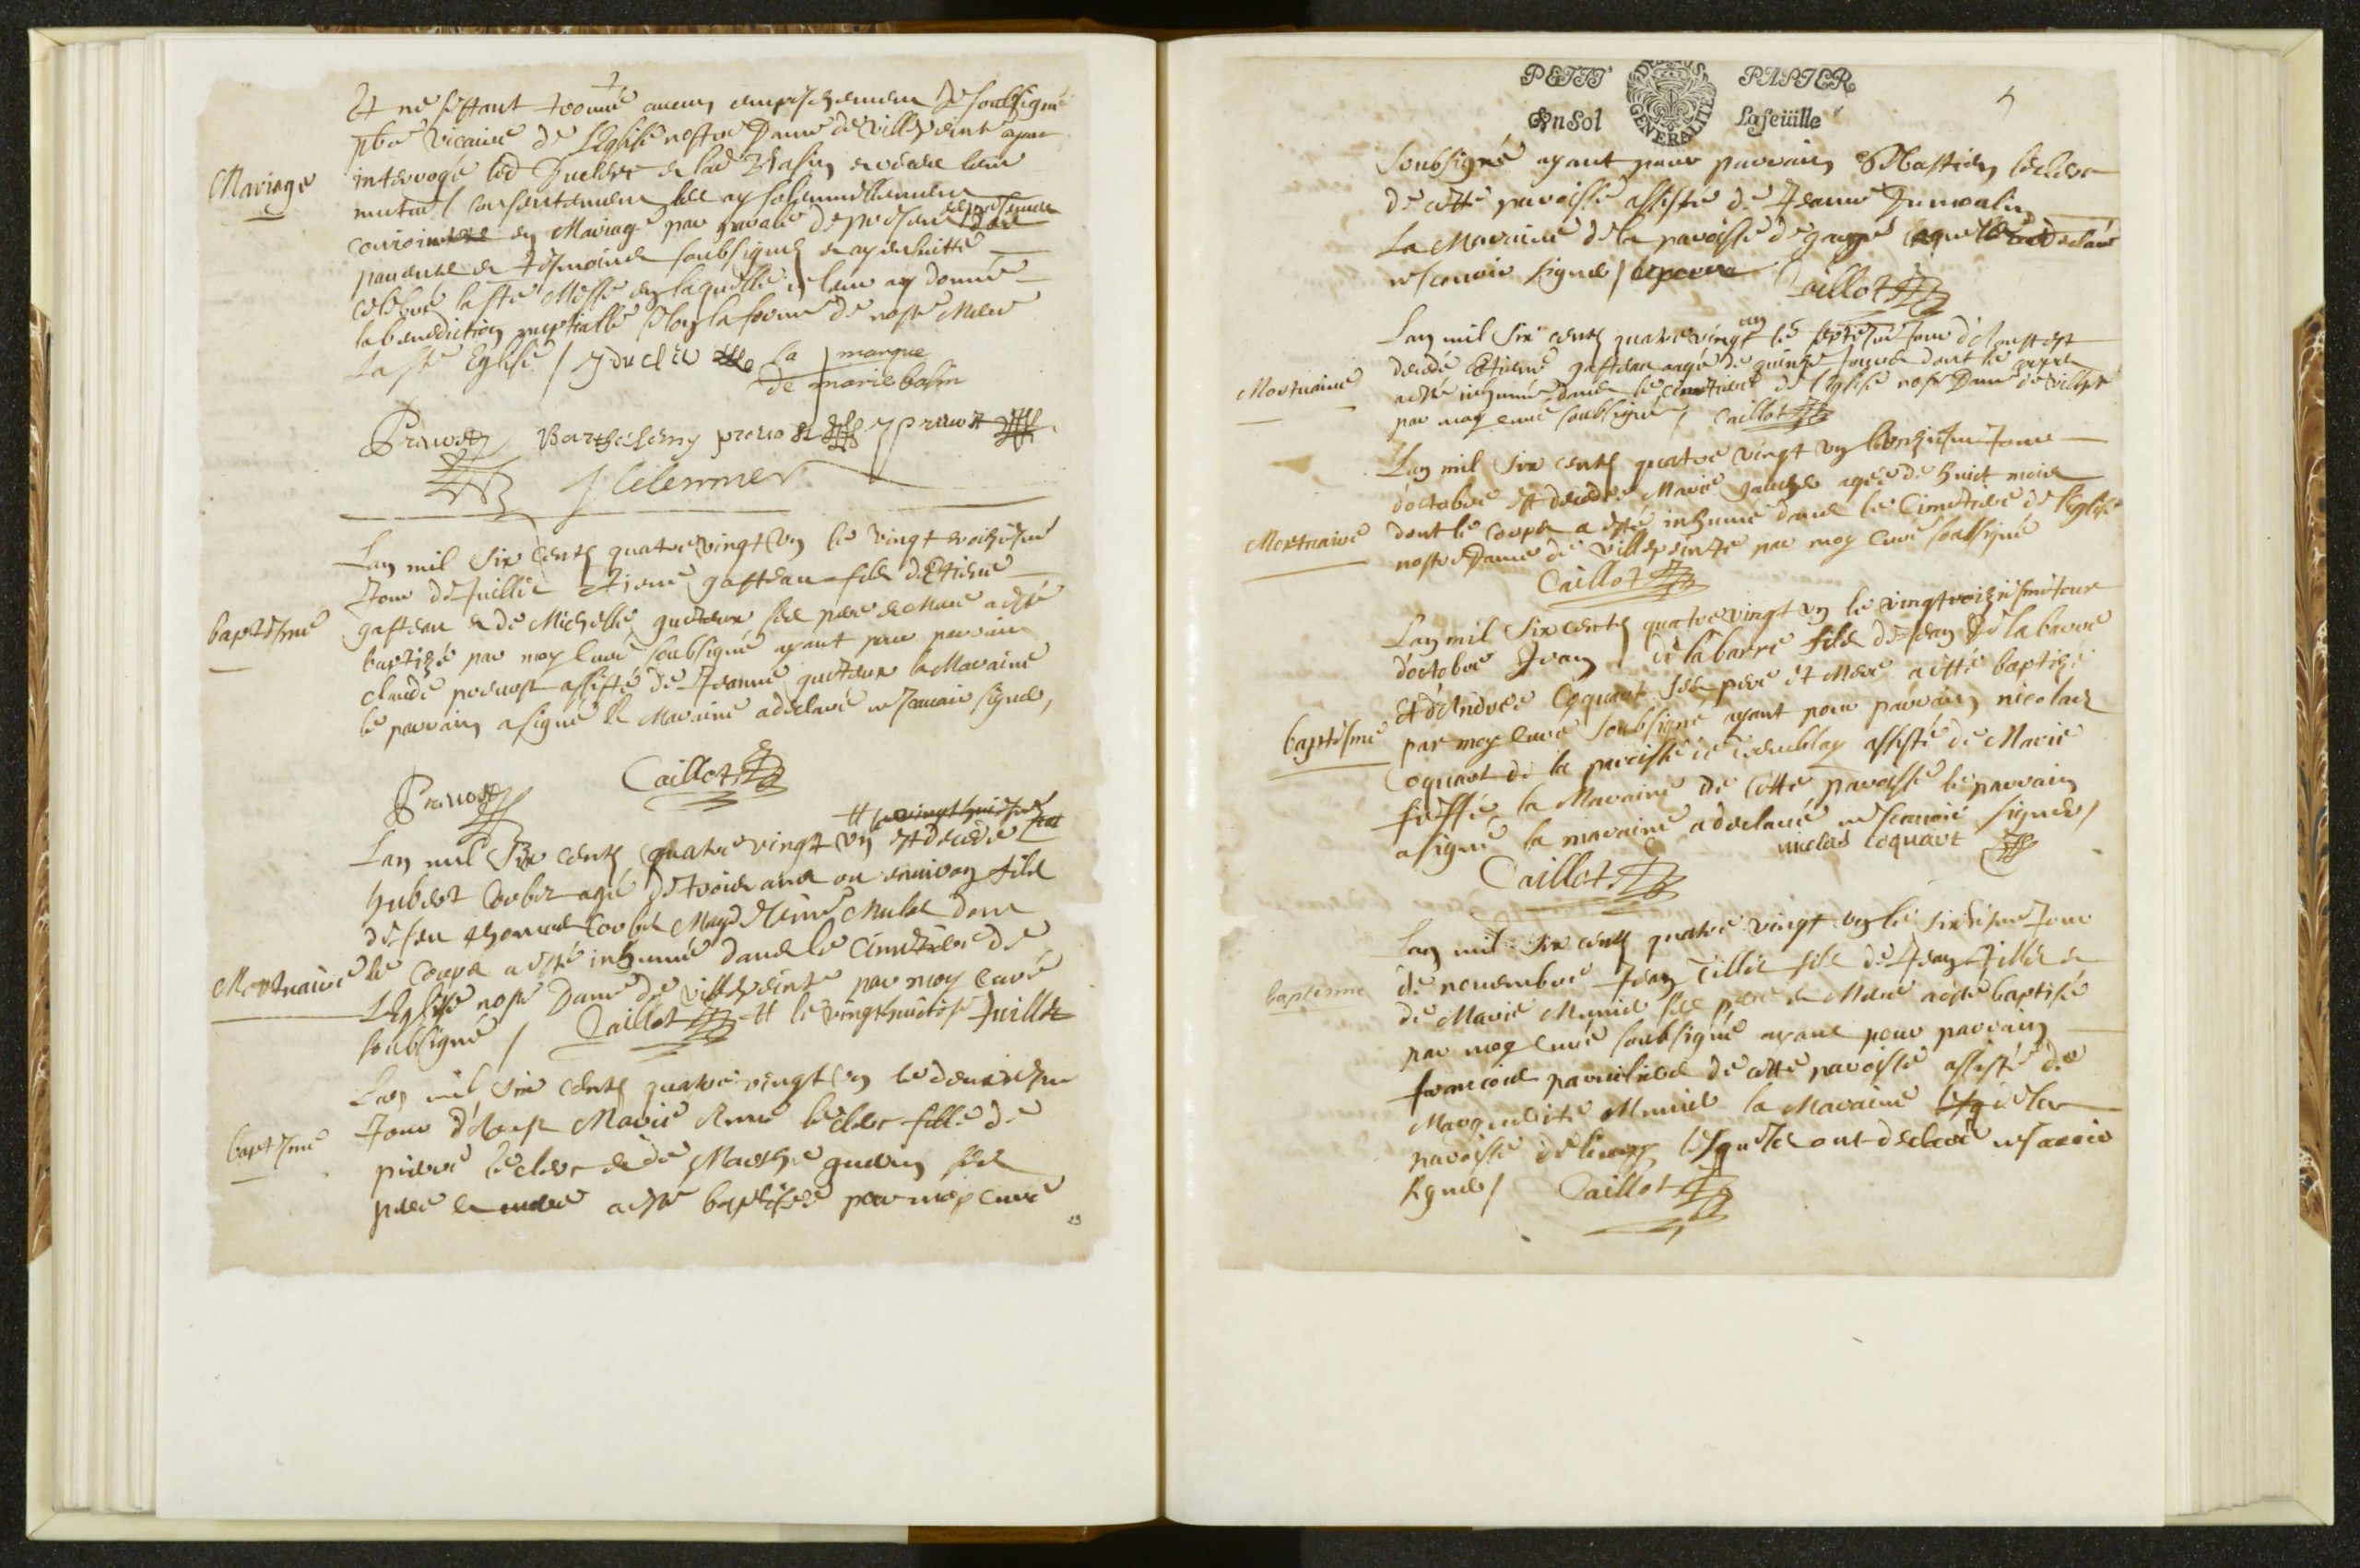 Et ne s'estant trouvé aucun empeschement Je soubsigné
pbre vicaire de L'Eglise nostre Dame de villepeinte ayant
Mariage
interrogé led Duclerc et lad Basin et receu leur
mutuel consentement les ay solemnellement
en Mariage par parole de present
tesmoins soubsignez et ay ensuitte
celebré la ste Messe en laquelle je leur ay donné
la benediction nuptialle selon la forme de nostre Mere
La ste Eglise / J duclerc La marque
de marie basin
Prevost Barthelemy prevost J prevost
J Clemmer
Lan mil six cents quatre vingt un le vingt troiziesme
baptesme
Jour de Juillet Etiene gasteau fils d'Etiene
gasteau et de Michelle ses pere et Mere a esté
baptizé par moy Curé soubsigné ayant pour parrain
claude prevost assisté de Jeanne la Maraine
le parrain a signé la Maraine a declaré ne scavoir signer,
Prevost Caillot
Lan mil Six cents quatre vingt un est decedé
hubert Corbet agé de trois ans ou environ fils
de feu thomas Corbet dont
Mortuaire
le Corps a esté inhumé dans le Cimetiere de
L'Eglise nostre Dame de villepeinte par moy Curé
soubsigné / Caillot H le vingt huitiesme Juillet
Lan mil six cents quatre vingt un le deuxiesme
baptesme
Jour d'Aoust Marie Anne leclerc fille de
pierre leclerc et de Marthe guerin ses
pere et mere a esté baptisée par moy Curé
PETIT PAPIER
Un Sol La feüille
GENERALITE
5
Soubsigné ayant pour parrain Sebastien leclerc
de cette paroisse assisté de Jeanne Dumoulin
La Maraine de la paroisse de laquelle a declaré
ne scavoir signer / Caillot
Lan mil Six cents quatre vingt un le septiesme Jour d'Aoust est
Mortuaire
decedé Etiene gasteau aagé de quinze Jours dont le corps
a esté inhumé dans le Cimetiere de l'Eglise nostre Dame de villepte
par moy curé soubsigné / Caillot
Lan mil Six cents quatre vingt un le onziesme Jour
d'octobre est decedée Marie agée de huict mois
Mortuaire
dont le corps a esté inhumé dans le Cimetiere de l'Eglise
nostre Dame de villepeinte par moy curé soubsigné
Caillot
Lan mil Six cents quatre vingt un le vingt troiziesme Jour
d'octobre Jean de labarre fils de Jean De la barre
Et d'Andrée Coquart ses pere et Mere a esté baptizé
baptesme
par moy curé soubsigné ayant pour parrain nicolas
Coquart de la paroisse de tremblay assisté de Marie
la Maraine de cette paroisse le parrain
a signé la maraine a declaré ne scavoir signer /
nicolas coquart
Caillot
Lan mil Six cents quatre vingt un le sixiesme Jour
baptesme
de novembre Jean Tillet fils de Jean Tillet et
de Marie Muniel ses pere et Mere a esté baptisé
par moy curé soubsigné ayant pour parrain
francois de cette paroisse assisté de
Marguerite Muniel la Maraine de la
paroisse de lesquels ont declaré ne scavoir
signer / Caillot